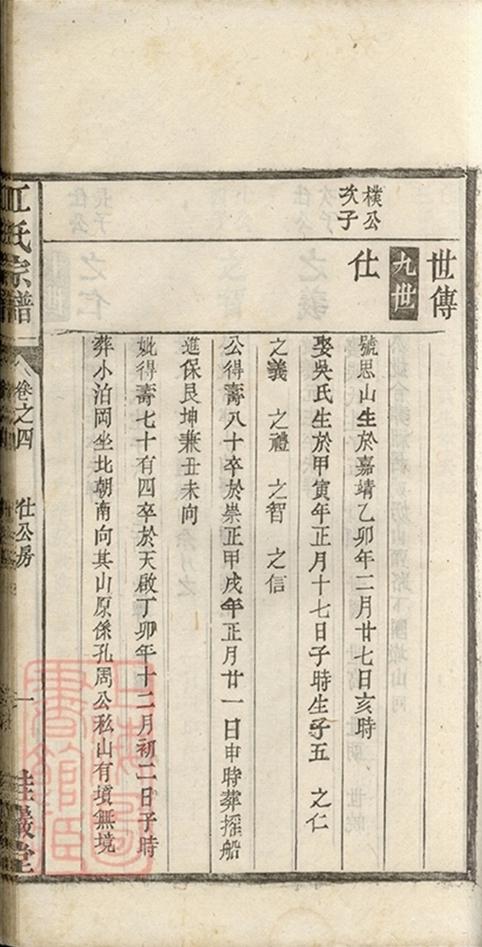 世傳
九世
樸公
次子
仕
號思山生於嘉靖乙卯年二月廿七日亥時
娶吳氏生於甲寅年正月十七日子時生子五 之仁
之義 之禮 之智 之信
公得壽八十卒於崇正甲戌年正月廿一日申時葬摇船
進保艮坤兼丑未向
妣得壽七十有四卒於天啟丁卯年十二月初二日子時
葬小泊岡坐北朝南向其山原係孔周公私山有墳無境
江氏宗譜
卷之四
仕公房
一